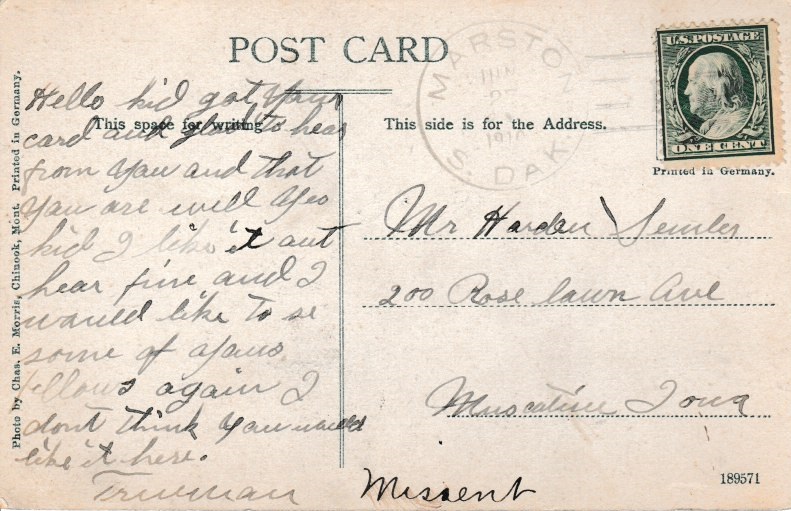 POST CARD
MARSTON
JUN
1910
S. DAK
U.S. POSTAGE
ONE CENT
Printed in Germany.
Photo by Chas. E. Morris, Chinook, Mont. Printed in Germany.
This space for writing
This side is for the Address.
Hello kid got your
card and glad to hear
from you and that
you are well yes
kid I like it out
hear fine and I
would like to se
some of yous
fellows again I
dont think you would
like it here.
Trueman
Mr Harden
200 Rose lawn Ave
Muscatine Iowa
Missent
189571